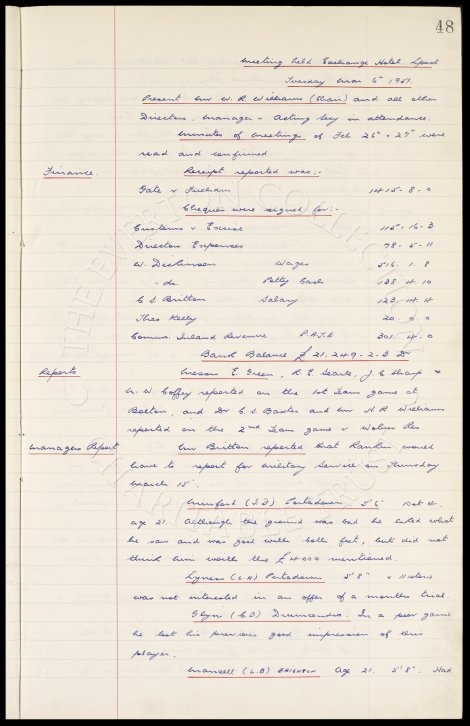 48
Meeting held Exchange Hotel Lpool
Tuesday Mar 6" 1951.
Present Mr W. R. Williams (Chair) and all other
Directors, Manager & Acting Secy in attendance.
Minutes of Meetings of Feb 26" & 27" were
read and confirmed.
Finance. Receipt reported was:-
Gate v Fulham 1415 - 8 - 0
Cheques were signed for:-
Customs & Excise 115 - 16 - 3
Directors Expenses 78 - 5 - 11
W. Dickinson Wages 516 . 1 . 8
- do Petty Cash 133 . 4 . 10
C S Britton Salary 123 . 14 . 4
Theo Kelly 20 . 0 . 0
Commrs. Inland Revenue P.A.Y.E 301 . 4 . 0
Bank Balance £ 21,249 - 2 - 3 Dr
Reports Messrs E. Green, R. E. Searle, J. C Sharp &
N. W. Coffey reported on the 1st Team game at
Bolton, and Dr C. S. Baxter and Mr A R Williams
reported on the 2nd Team game v Wolves Res.
Managers Report Mr Britton reported that Rankin would
have to report for Military Service on Thursday
March 15".
Mumford (I.F) Portadown. 5'6" 10st 4.
age 21 Although the ground was bad he liked what
he saw and was good with both feet, but did not
think him worth the £4000 mentioned.
Lyness (L.H) Portadown 5'8" & 11 stone
was not interested in an offer of a months trial.
Glyn (C.F) Drumcondra. In a poor game
he lost his previous good impression of this
player.
Mansell (L.B) BRIGHTON Age 21. 5'8". Had
THE EVERTON COLLECTION
CHARITABLE TRUST